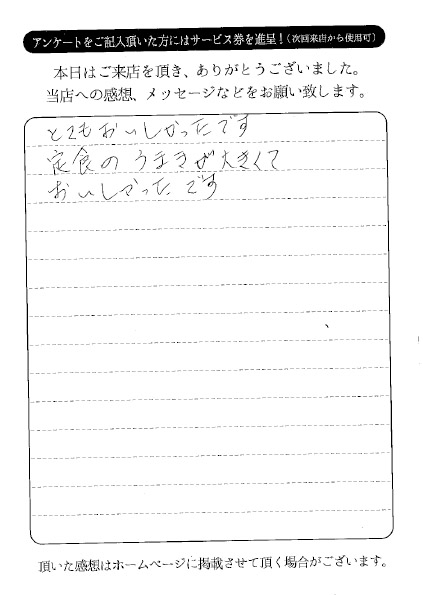 アンケートをご記入頂いた方にはサービス券を進呈！（次回来店から使用可）
本日はご来店を頂き、ありがとうございました。
当店への感想、メッセージなどをお願い致します。
とてもおいしかったです
定食のうまきが大きくて
おいしかったです
頂いた感想はホームページに掲載させて頂く場合がございます。